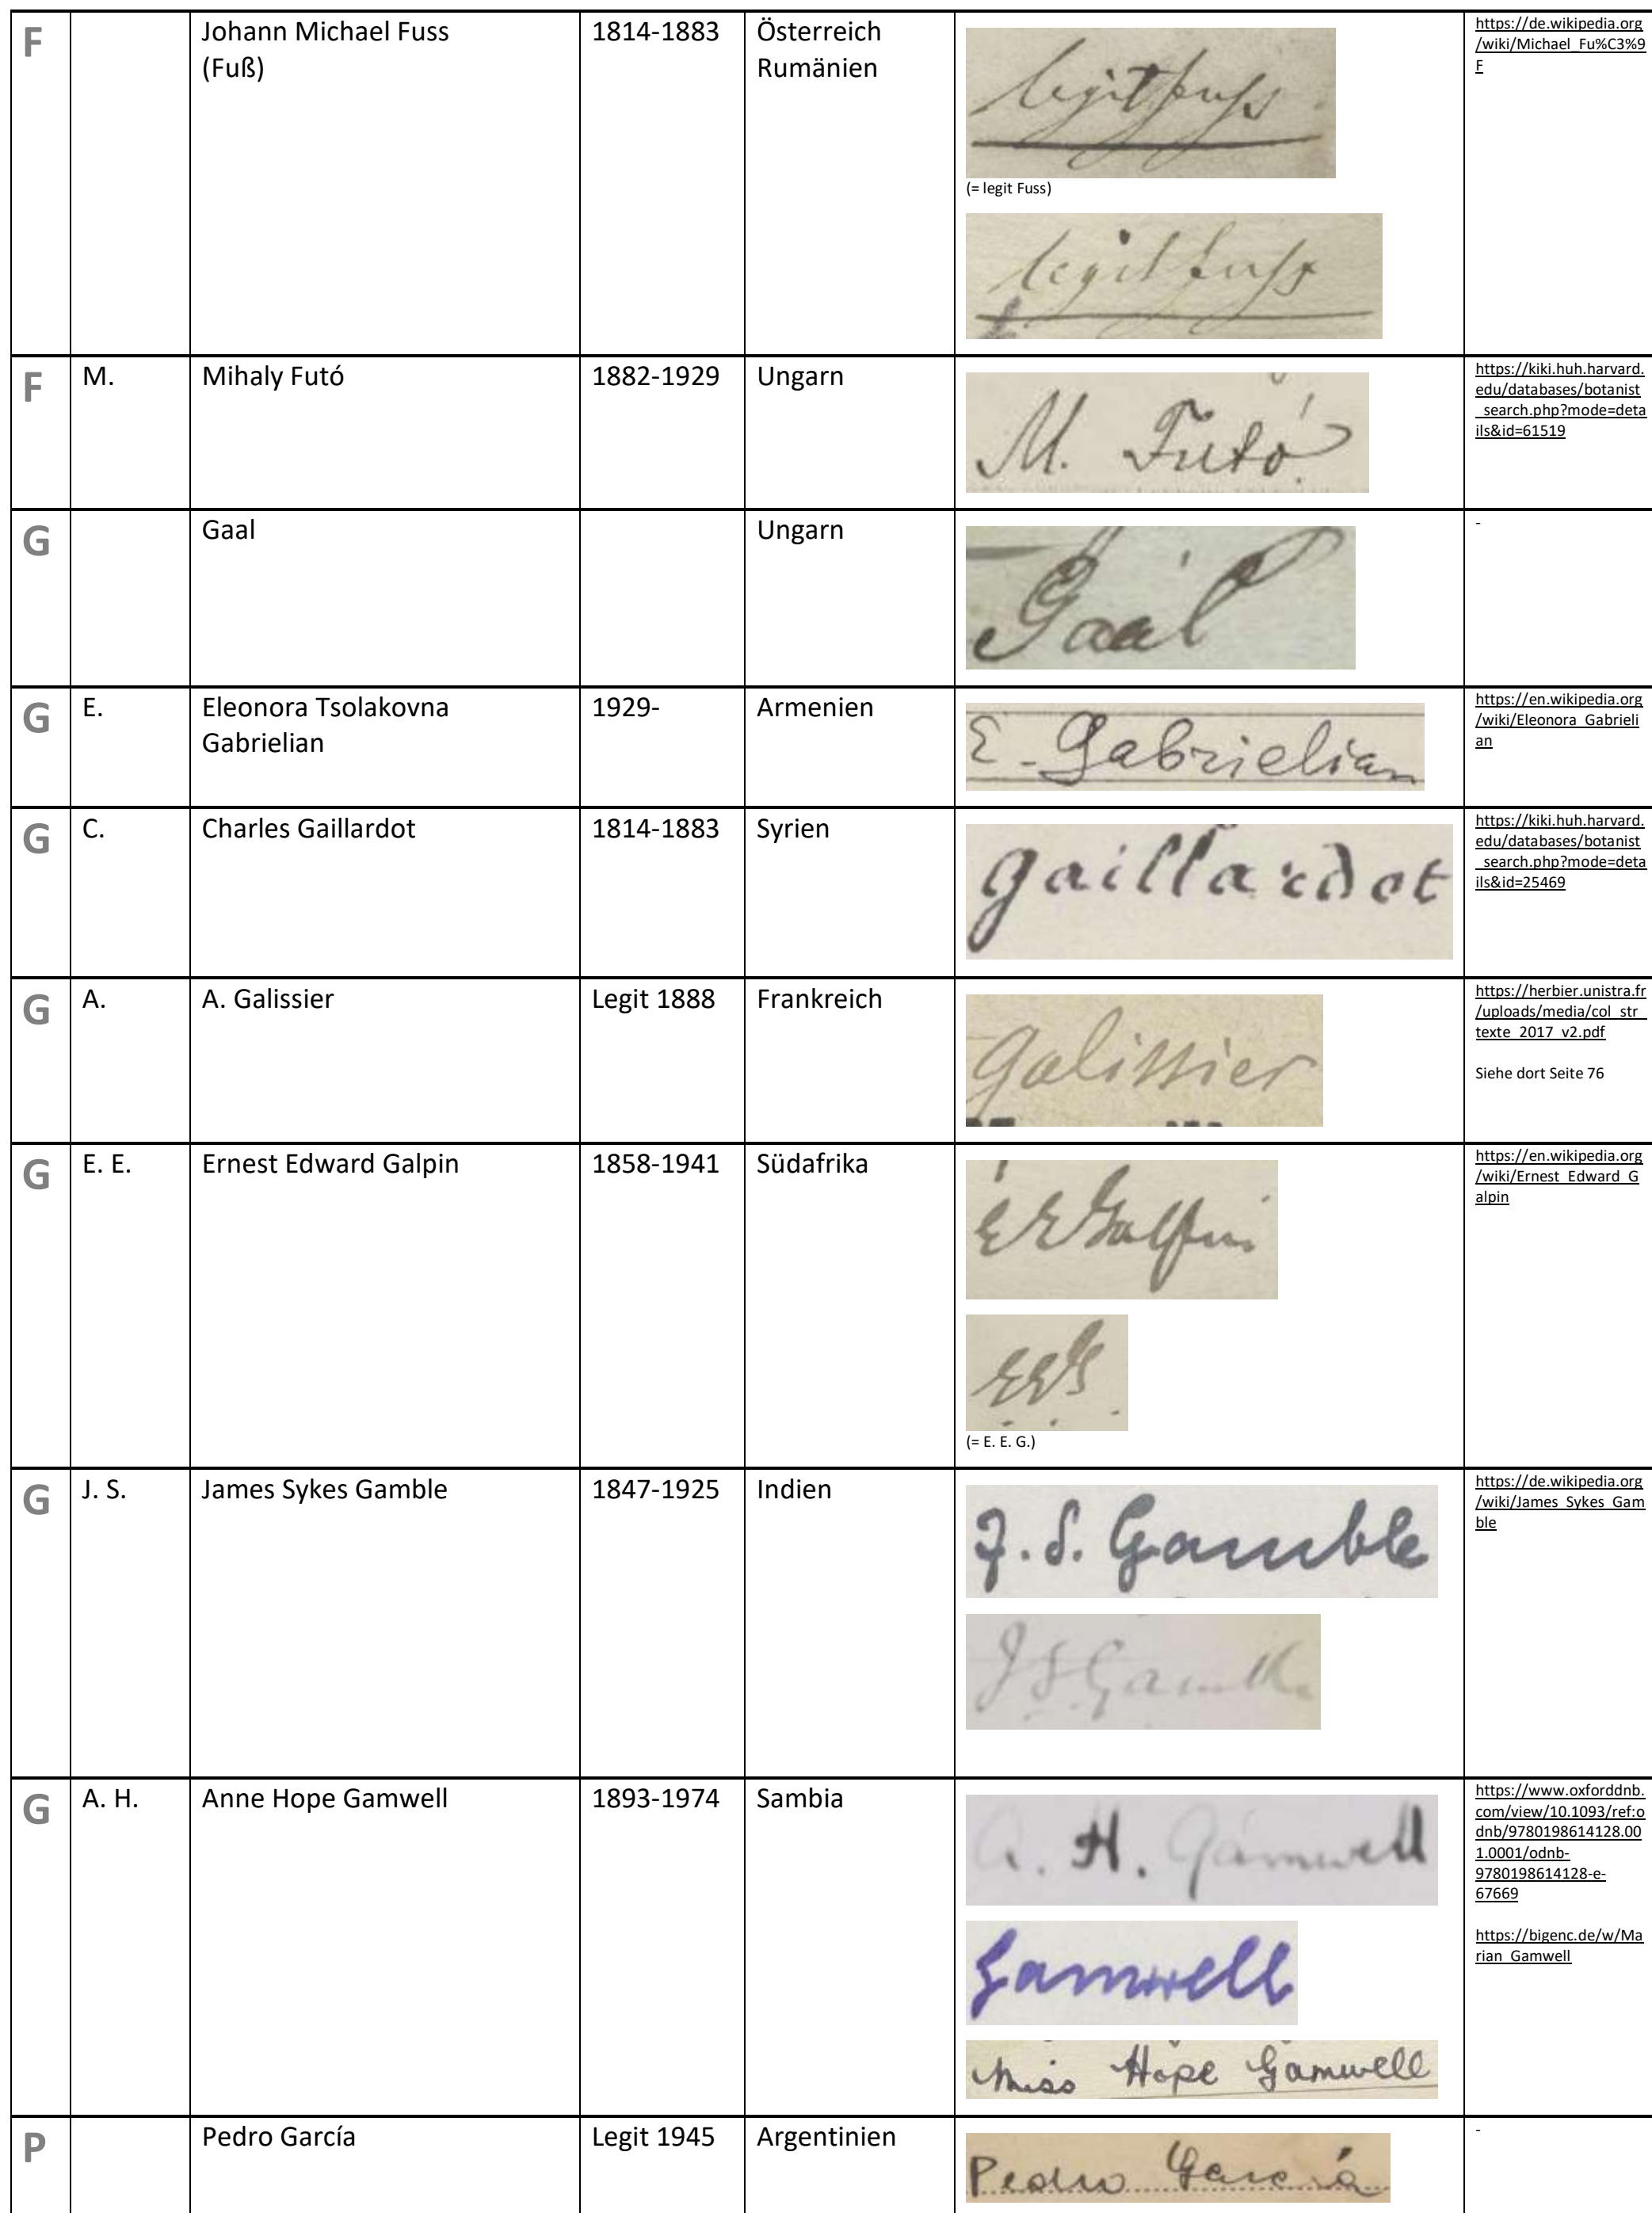 F
Johann Michael Fuss
(Fuß)
1814-1883
Österreich
Rumänien
legit Fuss
(= legit Fuss)
legit Fuss
https://de.wikipedia.org
/wiki/Michael_Fu%C3%9
F
F
M.
Mihaly Futó
1882-1929
Ungarn
M. Futó
https://kiki.huh.harvard.
edu/databases/botanist
_search.php?mode=deta
ils&id=61519
G
Gaal
Ungarn
Gaál
-
G
E.
Eleonora Tsolakovna
Gabrielian
1929-
Armenien
E. Gabrielian
https://en.wikipedia.org
/wiki/Eleonora_Gabrieli
an
G
C.
Charles Gaillardot
1814-1883
Syrien
gaillardot
https://kiki.huh.harvard.
edu/databases/botanist
_search.php?mode=deta
ils&id=25469
G
A.
A. Galissier
Legit 1888
Frankreich
Galissier
https://herbier.unistra.fr
/uploads/media/col_str_
texte_2017_v2.pdf
Siehe dort Seite 76
G
E. E.
Ernest Edward Galpin
1858-1941
Südafrika
E E Galpin
E.E.G.
(= E. E. G.)
https://en.wikipedia.org
/wiki/Ernest_Edward_G
alpin
G
J. S.
James Sykes Gamble
1847-1925
Indien
J. S. Gamble
J S Gamble
https://de.wikipedia.org
/wiki/James_Sykes_Gam
ble
G
A. H.
Anne Hope Gamwell
1893-1974
Sambia
A. H. Gamwell
Gamwell
Miss Hope Gamwell
https://www.oxforddnb.
com/view/10.1093/ref:o
dnb/9780198614128.00
1.0001/odnb-
9780198614128-e-
67669
https://bigenc.de/w/Ma
rian_Gamwell
P
Pedro García
Legit 1945
Argentinien
Pedro García
-